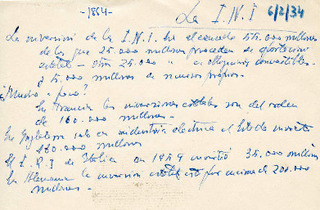 -1864-
La I.N.I
La inversión de la I.N.I. ha alcanzado 55.000 millones
de los que 25.000 millones proceden de aportación
estatal - otros 25.000 " a obligaciones convertibles -
y 5.000 millones de recursos propios.
¿Mucho - poco?
En Francia las inversiones estatales son del orden
de 160.000 millones -
En Inglaterra solo en industria eléctrica el Estado invierte
160.000 millones
El I.R.I de Italia en 1959 invirtió 35.000 millones
En Alemania la inversión estatal por encima de 200.000
millones -